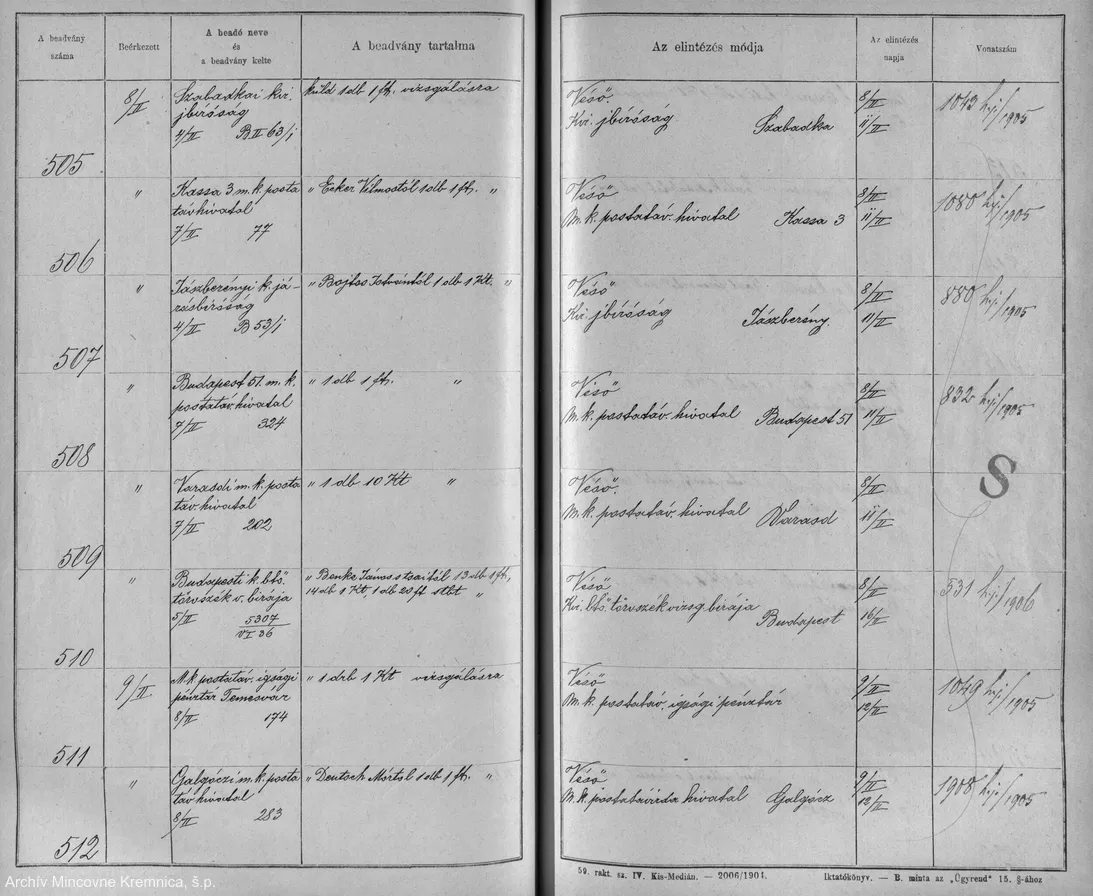 A beadvány
száma
Beérkezett
A beadó neve
és
a beadvány kelte
A beadvány tartalma
Az elintézés módja
Az elintézés
napja
Vonatszám
505
8/II
Szabadkai kir.
jbíróság
4/II B II 63/1
küld 1 db 1 ft. vizsgálásra
Véső.
Kir. jbíróság
Szabadka
8/II
11/II
1043 h.j./1905
506
"
Kassa 3 m. k. posta
távhivatal
7/II 77
" Ecker Vilmostól 1 db 1 ft. "
Véső
M. k. postatáv. hivatal Kassa 3
8/II
11/II
1080 h.j./1905
507
"
Jászberényi k. já-
rásbíróság
4/II B 53/1
" Bojtos Istvántól 1 db 1 Kt. "
Véső
Kir. jbíróság
Jászberény.
8/II
11/II
880 h.j./1905
508
"
Budapest 51. m. k.
postatáv. hivatal
7/II 324
" 1 db 1 ft. "
Véső
M. k. postatáv. hivatal Budapest 51
8/II
11/II
832 h.j./1905
509
"
Varasdi m. k. posta
táv. hivatal
7/II 202
" 1 db 10 Kt "
Véső.
M. k. postatáv. hivatal Varasd
8/II
11/II
S
510
"
Budapesti k. btő.
törvszék v. birája
5/II 5307
VI 36
" Benke János s tsaitól 13 db 1 ft,
14 db 1 Kt, 1 db 20 ft "
Véső
Kir. btő. törvszék vizsg. birája
Budapest
8/II
16/II
531 h.j./1906
511
9/II
M. k. postatáv. igsági
pénztár Temesvár
8/II 174
" 1 drb 1 Kt vizsgálásra
Véső
M. k. postatáv. igsági pénztár
9/II
13/II
1049 h.j./1905
512
"
Galgóczi m. k. posta
távhivatal
8/II 283
" Deutsch Mórtól 1 db 1 ft. "
Véső
M. k. postatávirda hivatal Galgócz
9/II
13/II
1908 h.j./1905
59. rakt. sz. IV. Kis-Medián. — 2006/1904.
Iktatókönyv. — B. minta az „Ügyrend" 15. §-ához
Archív Mincovne Kremnica, š.p.